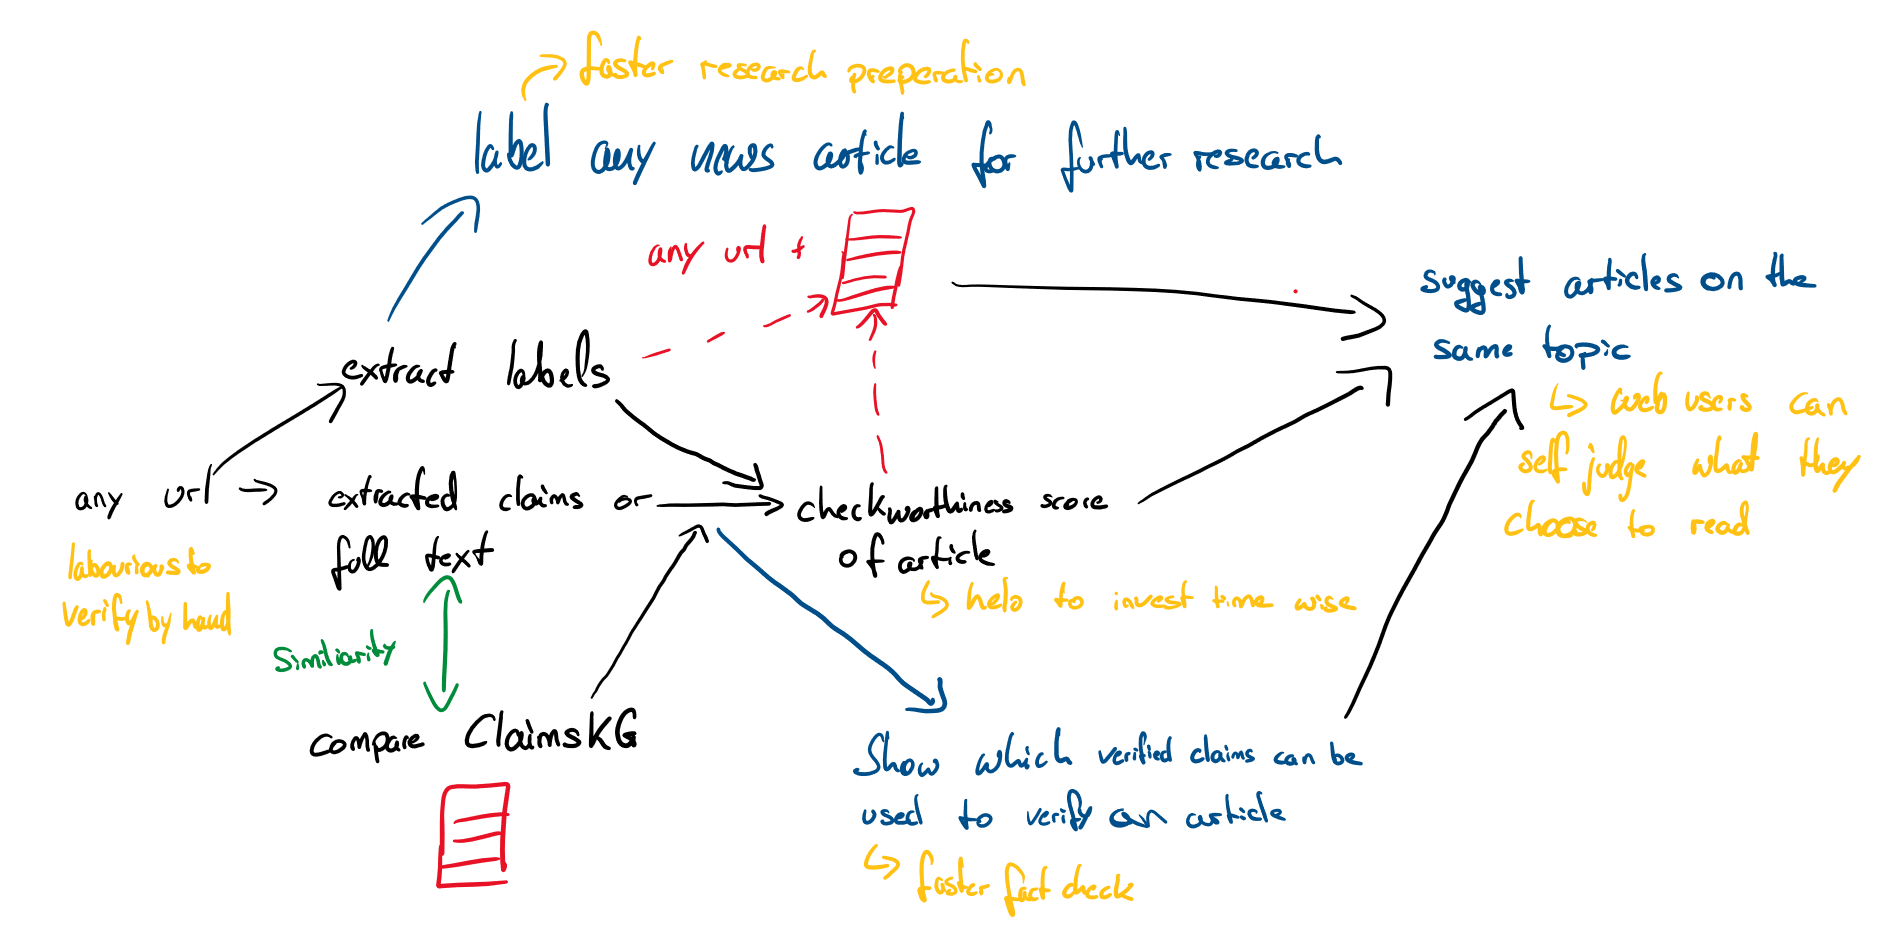 ↳ faster research preperation
label any news article for further research
any url +
extract labels
suggest articles on the
same topic
↳ web users can
self judge what they
choose to read
any url →
labourious to
verify by hand
extracted claims or
full text
checkworthiness score
of article
↳ help to invest time wise
Similiarity
compare ClaimsKG
Show which verified claims can be
used to verify an article
↳ faster fact check